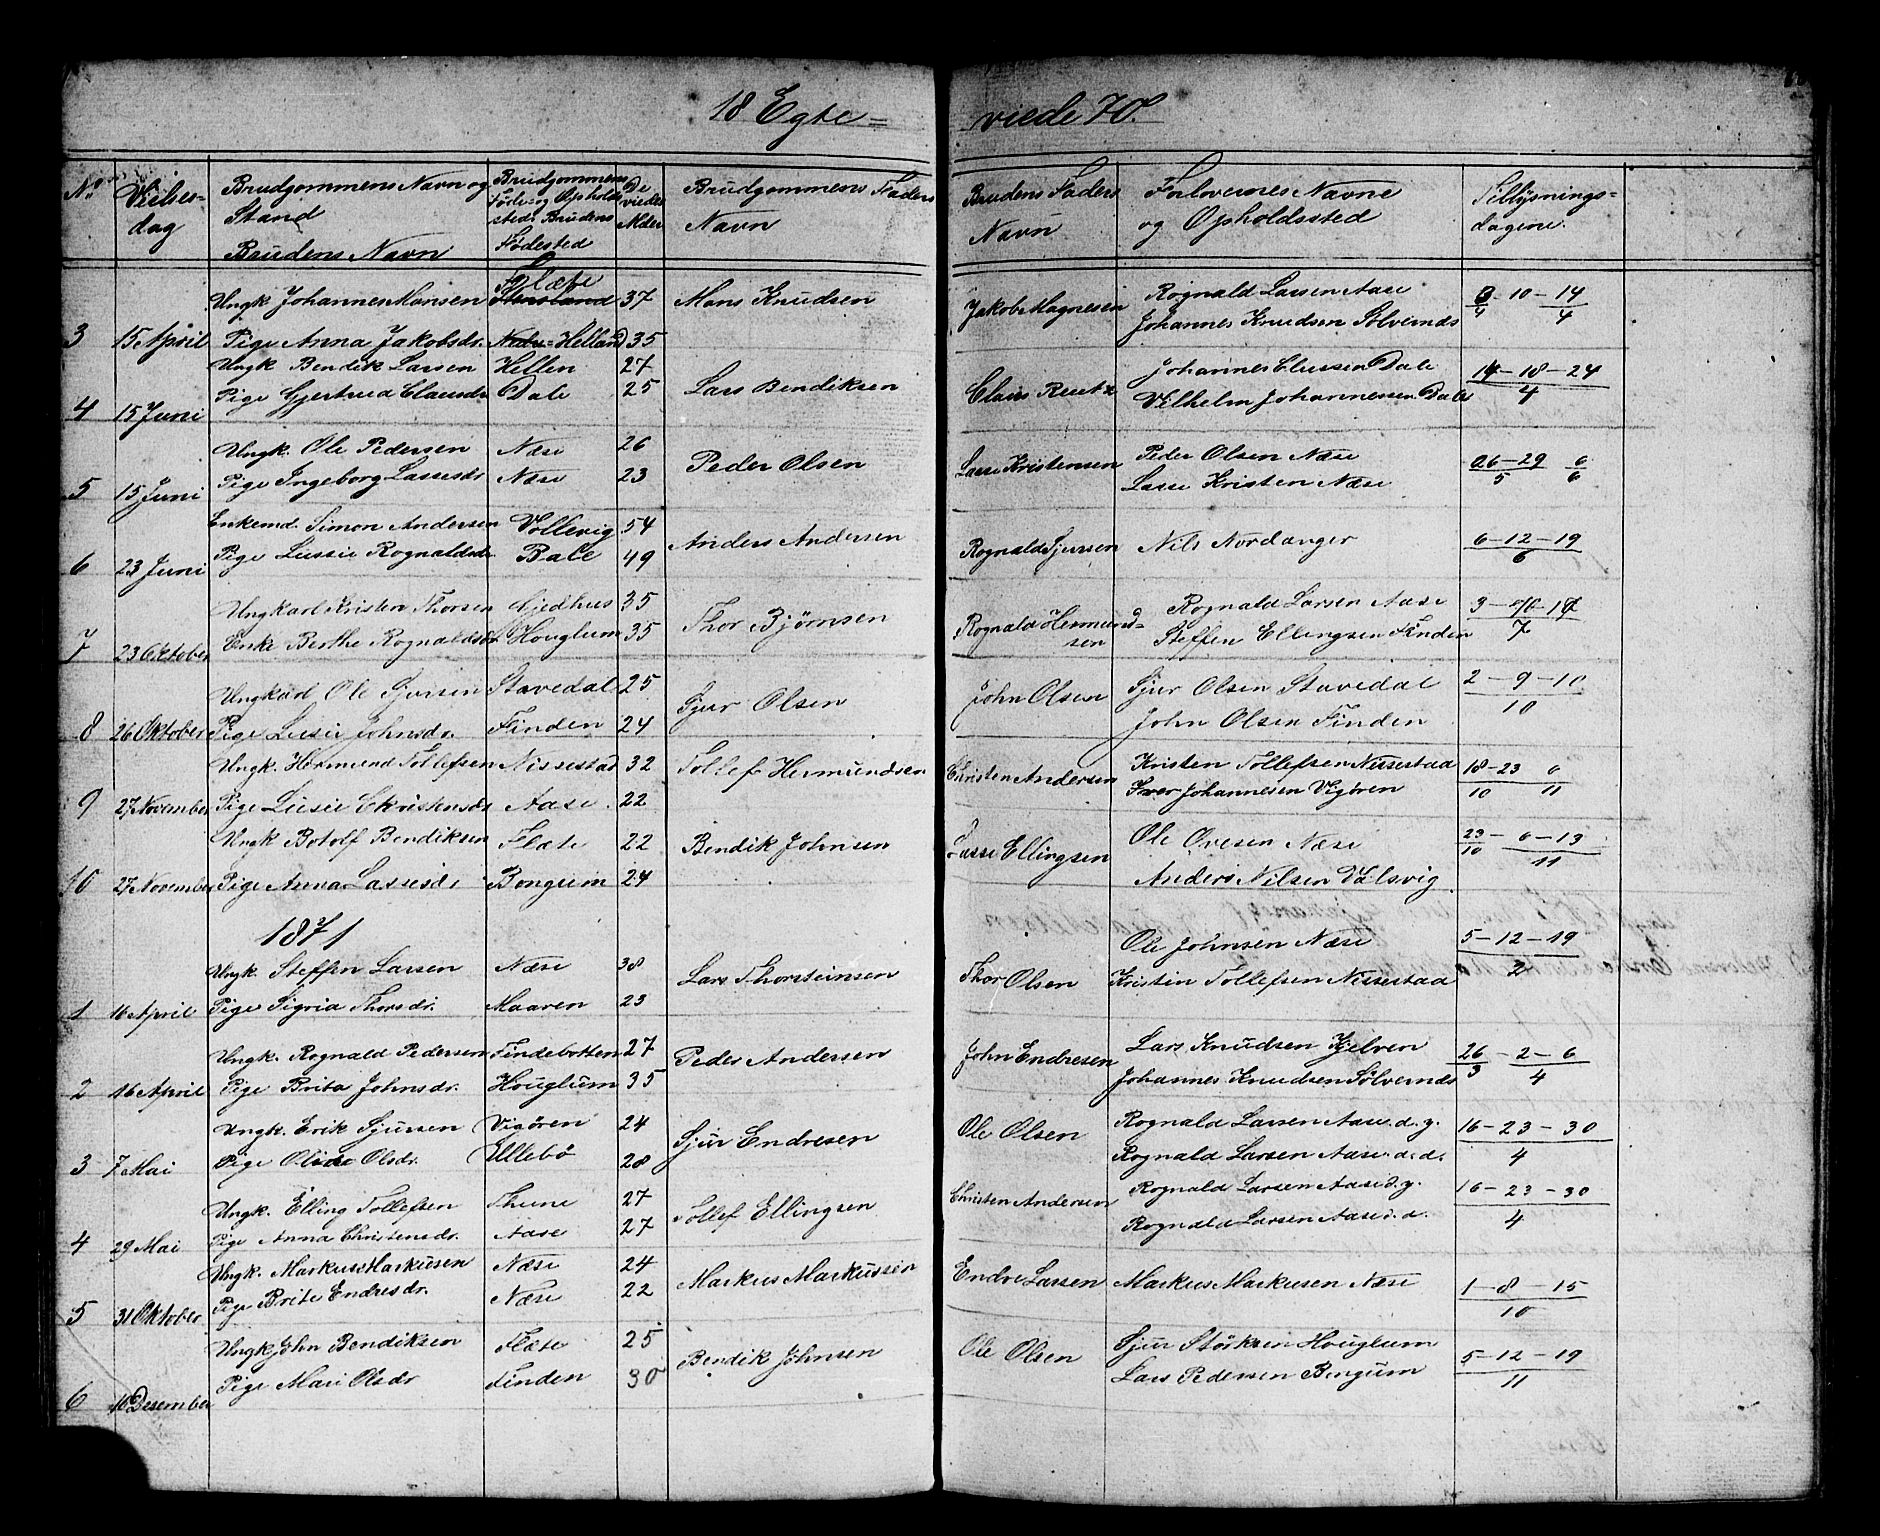 18 Egte= viede 70.
No Vielses- dag Brudgommens Navn og Stand Brudens Navn Brudgommens Føde- og Opholds sted Brudens Fødested De viedes Alder Brudgommens Faders Navn Brudens Faders Navn Forlovernes Navne og Opholdssted Tillysnings= dagene.
Ungk Johannes Hansen Flæte 37 Hans Knudsen Jakob Magnesen Rognald Larsen Aase 3/4 - 10 - 14/4
3 15 April Pige Anna Jakobsdr. Nedre=Helland 35 Johannes Knudsen Sølvernds
Ungk Bendik Larsen Hellen 27 Lars Bendiksen Claus Reutz Johannes Clussen Dale 14 - 18 - 24
4 15 Juni Pige Gjertrud Clausdr Dale 25 Vilhelm Johannessen Dale 4
Ungk. Ole Pedersen Næse 26 Peder Olsen Lasse Kristensen Peder Olsen Næse 26 - 29 6
5 15 Juni Pige Ingeborg Lassesdr Næse 23 Lasse Kristen Næse 5 6
Enkemd. Simon Andersen Vollevig 54 Anders Andersen Rognald Sjursen Nils Nordanger 6 - 12 - 19
6 23 Juni Pige Lussie Rognaldsdr Bale 49 6
Ungkarl Kristen Thorsen Gjedhus 35 Thor Bjørnsen Rognald Hermund= sen Rognald Larsen Aase 3 - 10 - 17
7 23 Oktober Enke Berthe Rognaldsdr Houglum 35 Steffen Ellingsen Finden 7
Ungkarl Ole Sjursen Stavedal 25 Sjur Olsen John Olsen Sjur Olsen Stavedal 2 - 9 - 10
8 26 Oktober Pige Lusie Johnsdr. Finden 24 John Olsen Finden 10
Ungk. Hermund Tollefsen Nissestad 32 Tollef Hermundsen Christen Andersen Kristen Tollefsen Nissestad 18 - 23 6
9 27 November Pige Lusie Christensdr Aase. 22 Iver Johannesen Vigøren 10 11
Ungk Botolf Bendiksen Flæte 22 Bendik Johnsen Lasse Ellingsen Ole Ovesen Næse 23/10 - 6 - 13
10 27 November Pige Anna Lassesdr Bongum 24 Anders Nilsen Valsvig 11
1871
Ungk. Steffen Larsen Næse 38 Lars Thorsteinsen Thor Olsen Ole Johnsen Næse 5 - 12 - 19
1 16 April Pige Sigrid Thorsdr. Maaren 23 Kristen Tollefsen Nissestad 2
Ungk. Rognald Pedersen Findebotten 27 Peder Andersen John Endresen Lars Knudsen Kjelven 26 - 2 - 6
2 16 April Pige Brita Johnsdr. Houglum 35 Johannes Knudsen Sølvernds 3 4
Ungk. Erik Sjursen Vigøren 24 Sjur Endresen Ole Olsen Rognald Larsen Aase. d. y. 16 - 23 - 30
3 7 Mai Pige Olsdr. Ullebø 28 Rognald Larsen Aase. d. d. 4
Ungk. Elling Tollefsen Thune 27 Tollef Ellingsen Christen Andersen Rognald Larsen Aase d. y. 16 - 23 - 30
4 29 Mai Pige Anna Christensdr. Aase 27 Rognald Larsen Aase d. d. 4
Ungk. Markus Markusen Næse 24 Markus Markussen Endre Larsen Markus Markusen Næse 1 - 8 - 15
5 31 Oktober Pige Brite Endresdr. Næse 22 10
Ungk John Bendiksen Flæte 25 Bendik Johnsen Ole Olsen Sjur Størksen Houglum 5 - 12 - 19
6 10 Desember Pige Mari Olsdr Finden 30 Lars Pedersen Bongum 11